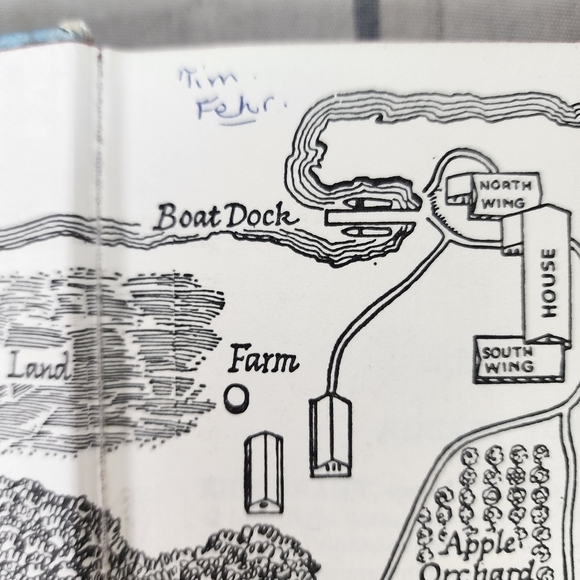 Tim.
Fehr.
NORTH
WING
Boat Dock
HOUSE
SOUTH
WING
Farm
Land
Apple
Orchard